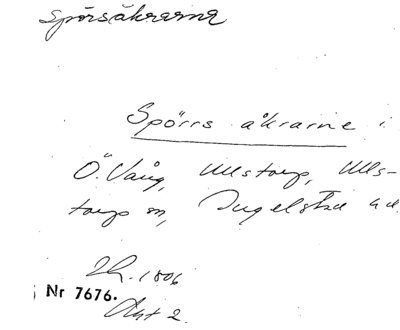 Spörsåkrarna
Spörrs åkrarne i
Ö. Vång, Ullstorp, Ulls-
torp sn, Ingelsta hd.
Lh. 1806
Nr 7676.
Akt 2.